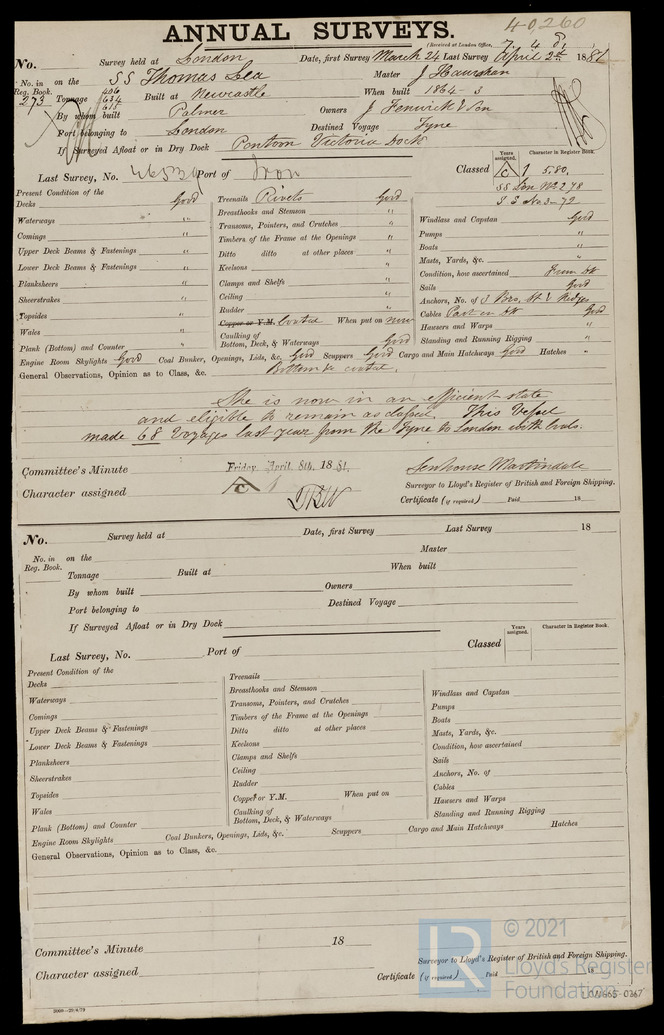 ANNUAL SURVEYS.
40260
(Received at London Office, 7. 4. 81
No. Survey held at London Date, first Survey March 24 Last Survey April 2nd 1881
No. in Reg. Book. 273 on the SS Thomas Lea Master J
Tonnage 634 Built at Newcastle When built 1864-3
By whom built Palmer Owners J Fenwick & Son
Port belonging to London Destined Voyage Tyne
If Surveyed Afloat or in Dry Dock Pontoon Victoria Dock
Years assigned. Character in Register Book.
Last Survey, No. Port of Iron Classed C 1 5,80.
SS Lon No 2 78
S S No 3-72
Present Condition of the
Decks Good Treenails Rivets Good
Waterways " Breasthooks and Stemson " Windlass and Capstan Good
Comings " Transoms, Pointers, and Crutches " Pumps "
Upper Deck Beams & Fastenings " Timbers of the Frame at the Openings " Boats "
Lower Deck Beams & Fastenings " Ditto ditto at other places " Masts, Yards, &c. "
Planksheers " Keelsons " Condition, how ascertained From dk
Sheerstrakes " Clamps and Shelfs " Sails Good
Topsides " Ceiling " Anchors, No. of 3 Bro, St &
Wales " Rudder " Cables Part on dk Good
Copper or Y.M. Coated When put on now Hausers and Warps "
Plank (Bottom) and Counter " Caulking of Bottom, Deck, & Waterways Good Standing and Running Rigging "
Engine Room Skylights Good Coal Bunkers, Openings, Lids, &c. Good Scuppers Good Cargo and Main Hatchways Good Hatches "
General Observations, Opinion as to Class, &c. Bottom coated.
She is now in an efficient state
and eligible to remain as classed. This Vessel
made 68 Voyages last year from the Tyne to London with coals.
Committee's Minute Friday April 8th, 1881. Senhouse Martindale
Character assigned C 1 Surveyor to Lloyd's Register of British and Foreign Shipping.
Certificate (if required) Paid 18
No. Survey held at Date, first Survey Last Survey 18
No. in Reg. Book. on the Master
Tonnage Built at When built
By whom built Owners
Port belonging to Destined Voyage
If Surveyed Afloat or in Dry Dock
Years assigned. Character in Register Book.
Last Survey, No. Port of Classed
Present Condition of the
Decks Treenails
Waterways Breasthooks and Stemson Windlass and Capstan
Comings Transoms, Pointers, and Crutches Pumps
Upper Deck Beams & Fastenings Timbers of the Frame at the Openings Boats
Lower Deck Beams & Fastenings Ditto ditto at other places Masts, Yards, &c.
Planksheers Keelsons Condition, how ascertained
Sheerstrakes Clamps and Shelfs Sails
Topsides Ceiling Anchors, No. of
Wales Rudder Cables
Copper or Y.M. When put on Hausers and Warps
Plank (Bottom) and Counter Caulking of Bottom, Deck, & Waterways Standing and Running Rigging
Engine Room Skylights Coal Bunkers, Openings, Lids, &c. Scuppers Cargo and Main Hatchways Hatches
General Observations, Opinion as to Class, &c.
Committee's Minute 18
Surveyor to Lloyd's Register of British and Foreign Shipping.
Character assigned Certificate (if required) Paid 18
LR © 2021
Lloyd's Register
Foundation
LON665-0367